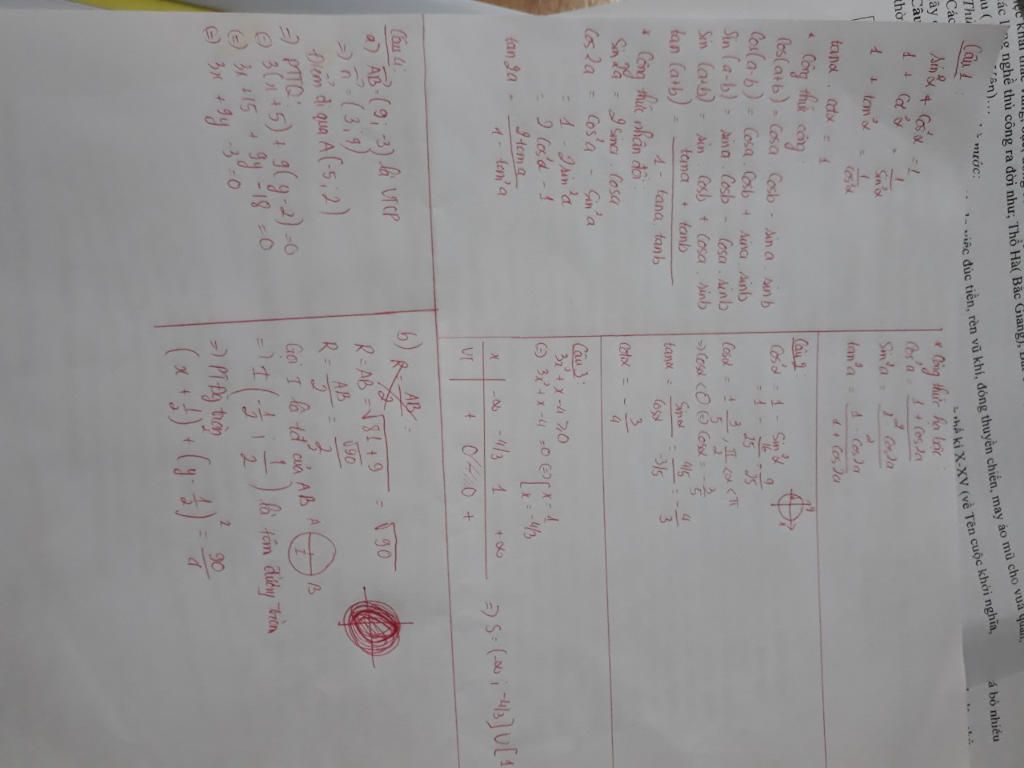 Câu 1:
sin²α + cos²α = 1
1 + cot²α = 1/sin²α
1 + tan²α = 1/cos²α
tanα . cotα = 1
* Công thức cộng:
cos(a+b) = cosa cosb - sina . sinb
cos(a-b) = cosa cosb + sina . sinb
sin(a-b) = sina cosb - cosa . sinb
sin(a+b) = sina cosb + cosa . sinb
tan(a+b) = (tana + tanb)/(1 - tana . tanb)
* Công thức nhân đôi:
sin2a = 2sina . cosa
cos2a = cos²a - sin²a
= 1 - 2sin²a
= 2cos²a - 1
tan2a = 2tana/(1 - tan²a)
* Công thức hạ bậc:
cos²a = (1 + cos2a)/2
sin²a = (1 - cos2a)/2
tan²a = (1 - cos2a)/(1 + cos2a)
Câu 2:
cos²α = 1 - sin²α
= 1 - 16/25 = 9/25
cosα = ± 3/5, π/2 < α < π
=> cosα < 0 => cosα = -3/5
tanα = sinα/cosα = (4/5)/(-3/5) = -4/3
cotα = -3/4
Câu 3:
3x² + x - 4 ≥ 0
(=) 3x² + x - 4 = 0 (=) [x = 1
x = -4/3
x -∞ -4/3 1 +∞
VT + 0 //// 0 +
=> S = (-∞ ; -4/3] U [1
Câu 4:
a) AB = (9; -3) là VTCP
=> n = (3; 9)
Điểm đi qua A(-5; 2)
=> PTTQ:
(=) 3(x + 5) + 9(y - 2) = 0
(=) 3x + 15 + 9y - 18 = 0
(=) 3x + 9y - 3 = 0
b) R = AB/2 =
R = AB = √81 + 9 = √90
R = AB/2 = √90/2
Gọi I là tđ của AB
A I B
=> I (-1/2 ; 1/2) là tâm đường tròn
=> Pt đg tròn
(x + 1/2)² + (y - 1/2)² = 90/4